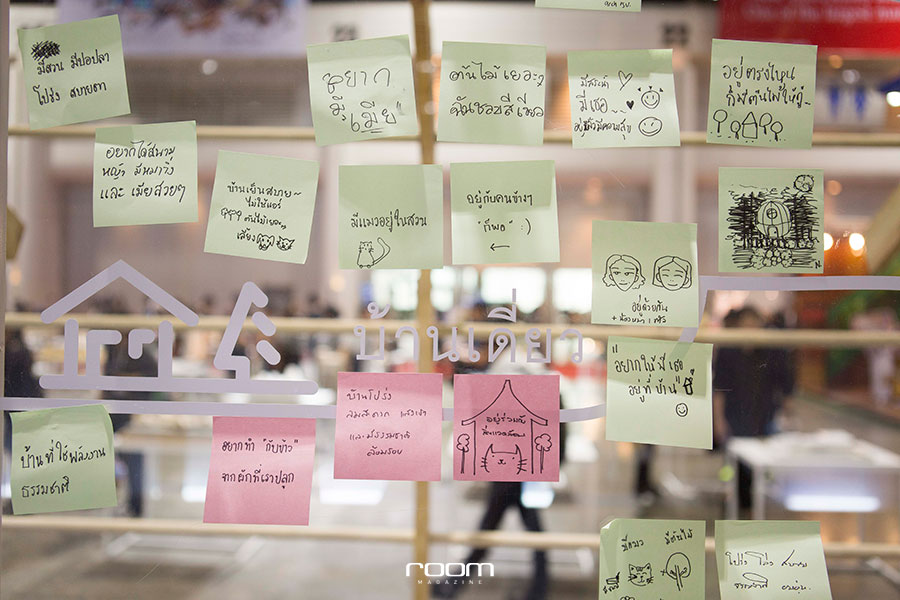 มีสวน มีบ่อปลา
โปร่ง สบายตา
อยาก
มีเมีย"
ต้นไม้ เยอะๆ
ฉันชอบสีเขียว
มีสระน้ำ
มีเธอ
อยู่ตรงไหน
ก็มีต้นไม้ให้ดู~
อยากได้สนาม
หญ้า มีหมาวิ่ง
และ เมียสวยๆ
บ้านเย็นสบาย~
ไม่ใช้แอร์
ต้นไม้เยอะๆ
เลี้ยง
มีแมวอยู่ในสวน
อยู่กับคนข้างๆ
"ก็พอ" :)
←
N
อยู่ด้วยกัน
บ้านเดี่ยว
"อยากให้มีเธอ
อยู่ที่บ้าน"
บ้านโปร่ง
ลมสะดวก แสงเข้า
และมีธรรมชาติ
ล้อมรอบ
อยู่ร่วมกับ
สิ่งแวดล้อม
บ้านที่ใช้พลังงาน
ธรรมชาติ
อยากทำ "กับข้าว"
จากผักที่เราปลูก
มีแมว มีต้นไม้
โปร่ง โล่ง สบาย
ธรรมชาติ อบอุ่น
room
MAGAZINE